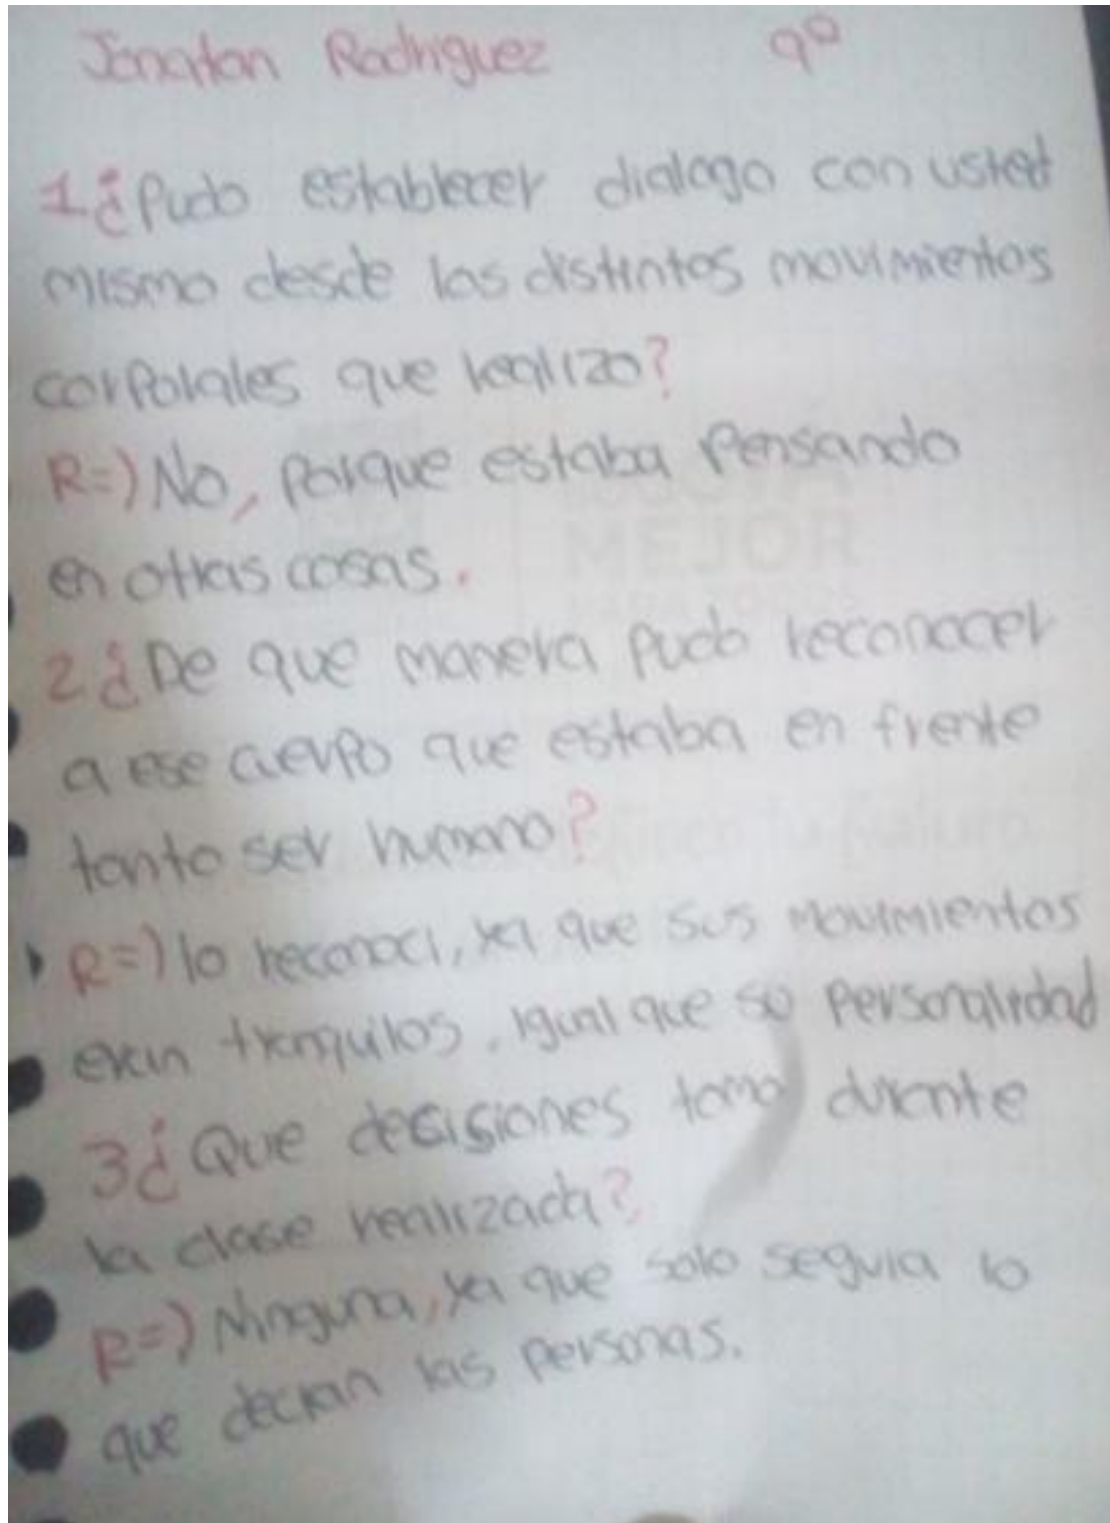 Jonatan Rodriguez 9º
1¿Pudo establecer dialogo con usted
mismo desde los distintos movimientos
corporales que realizo?
R=) No, porque estaba Pensando
en otras cosas.
2¿De que manera pudo reconocer
a ese cuerpo que estaba en frente
tanto ser humano?
R=) lo reconoci, ya que sus movimientos
eran tranquilos, igual que su personalidad
3¿Que decisiones tomo durante
la clase realizada?
R=) Ninguna, ya que solo seguia lo
que decian las personas.
MEJOR